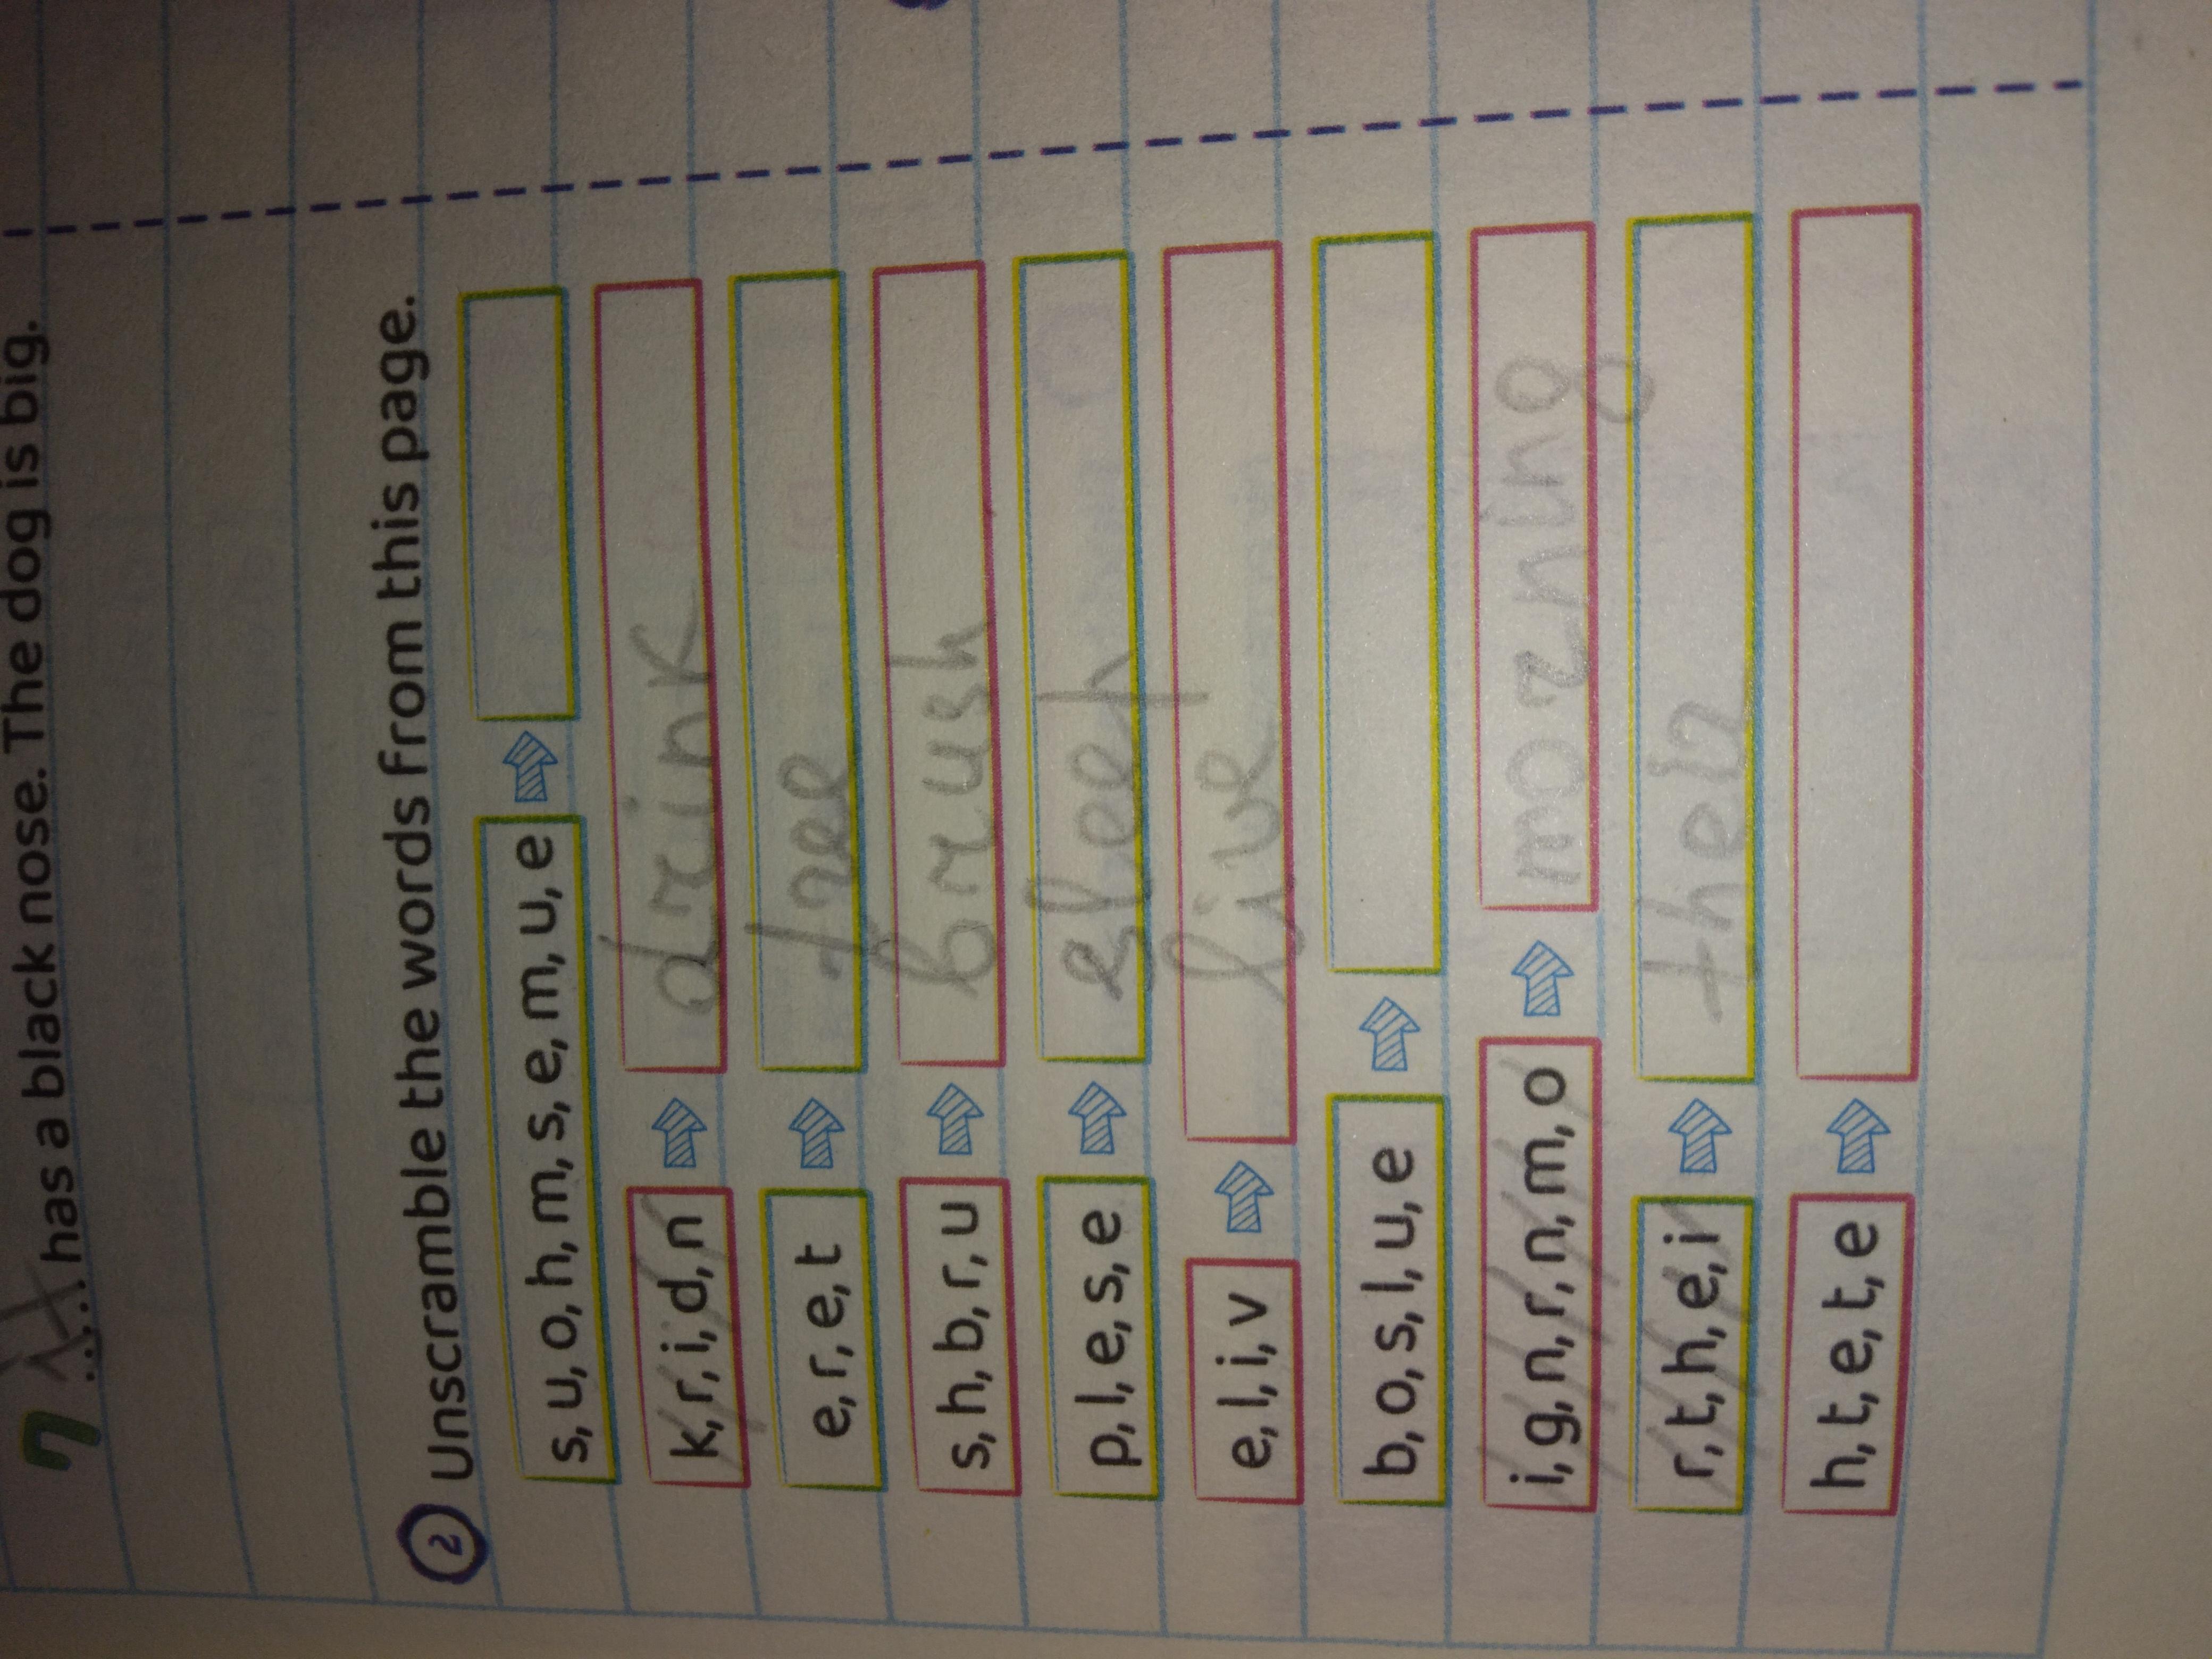 7 ..... has a black nose. The dog is big.
2 Unscramble the words from this page.
s, u, o, h, m, s, e, m, u, e
k, r, i, d, n drink
e, r, e, t tree
s, h, b, r, u brush
p, l, e, s, e sleep
e, l, i, v live
b, o, s, l, u, e
i, g, n, r, n, m, o morning
r, t, h, e, i their
h, t, e, t, e